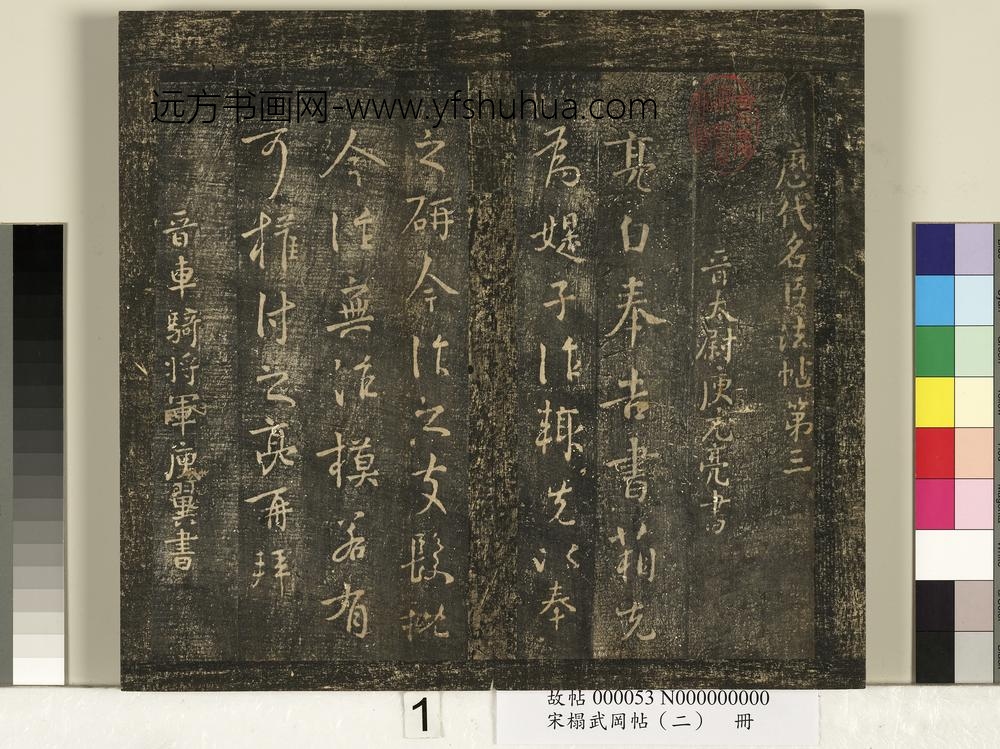 远方书画网-www.yfshuhua.com
歷代名臣法帖第三
晋太尉庾元亮書
亮白奉告書箱先
為媞子作輙先以奉
之研今作之
今作無
若有
可權付之亮再拜
晋車騎将軍庾翼書
1
故帖 000053 N000000000
宋榻武岡帖（二） 冊